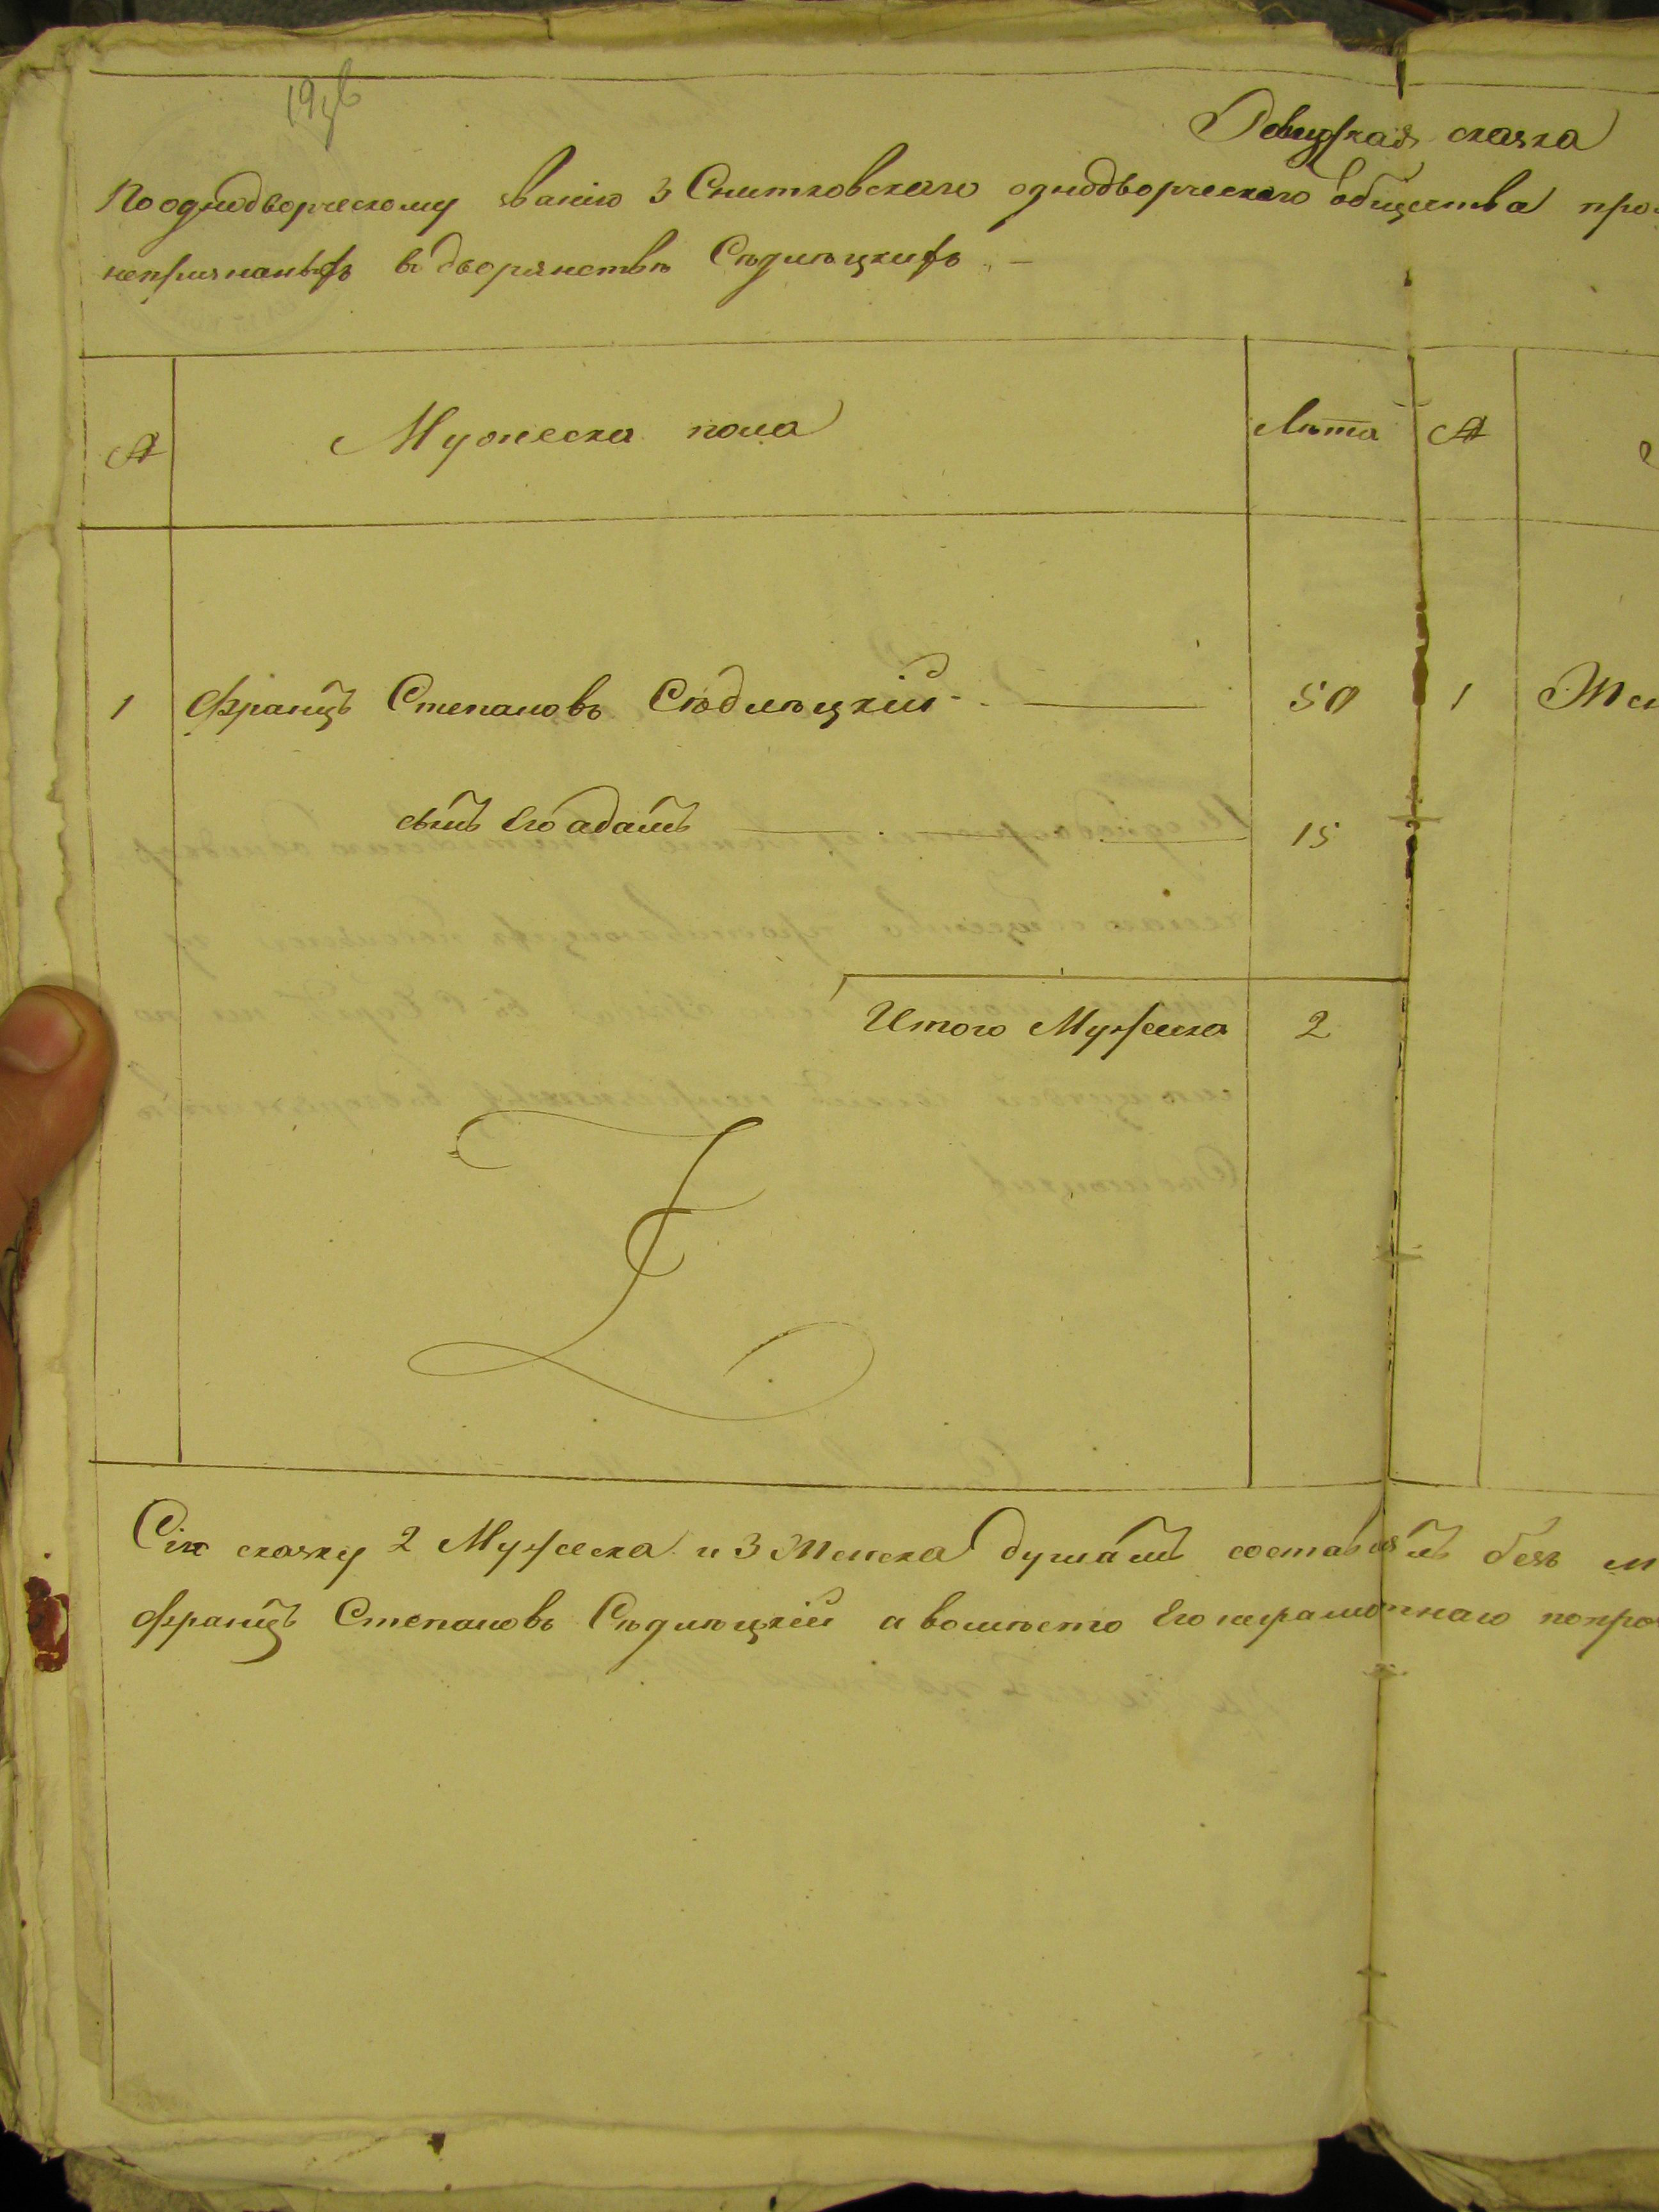 Ревизская сказка
По однодворческому званію 3 Снитковскаго однодворческаго общества про
непризнаныхъ в дворянствѣ Сѣдлѣцкихъ. —
№ Мужеска пола Лѣта №
1 Францъ Степановъ Сѣдлѣцкій 50 1 Же
сынъ Его адамъ 15
Итого Мужеска 2
Сію сказку 2 Мужеска и 3 Женска душамъ составилъ безъ
францъ Степановъ Сѣдлѣцкій а вомѣсто Его неграмотнаго попро